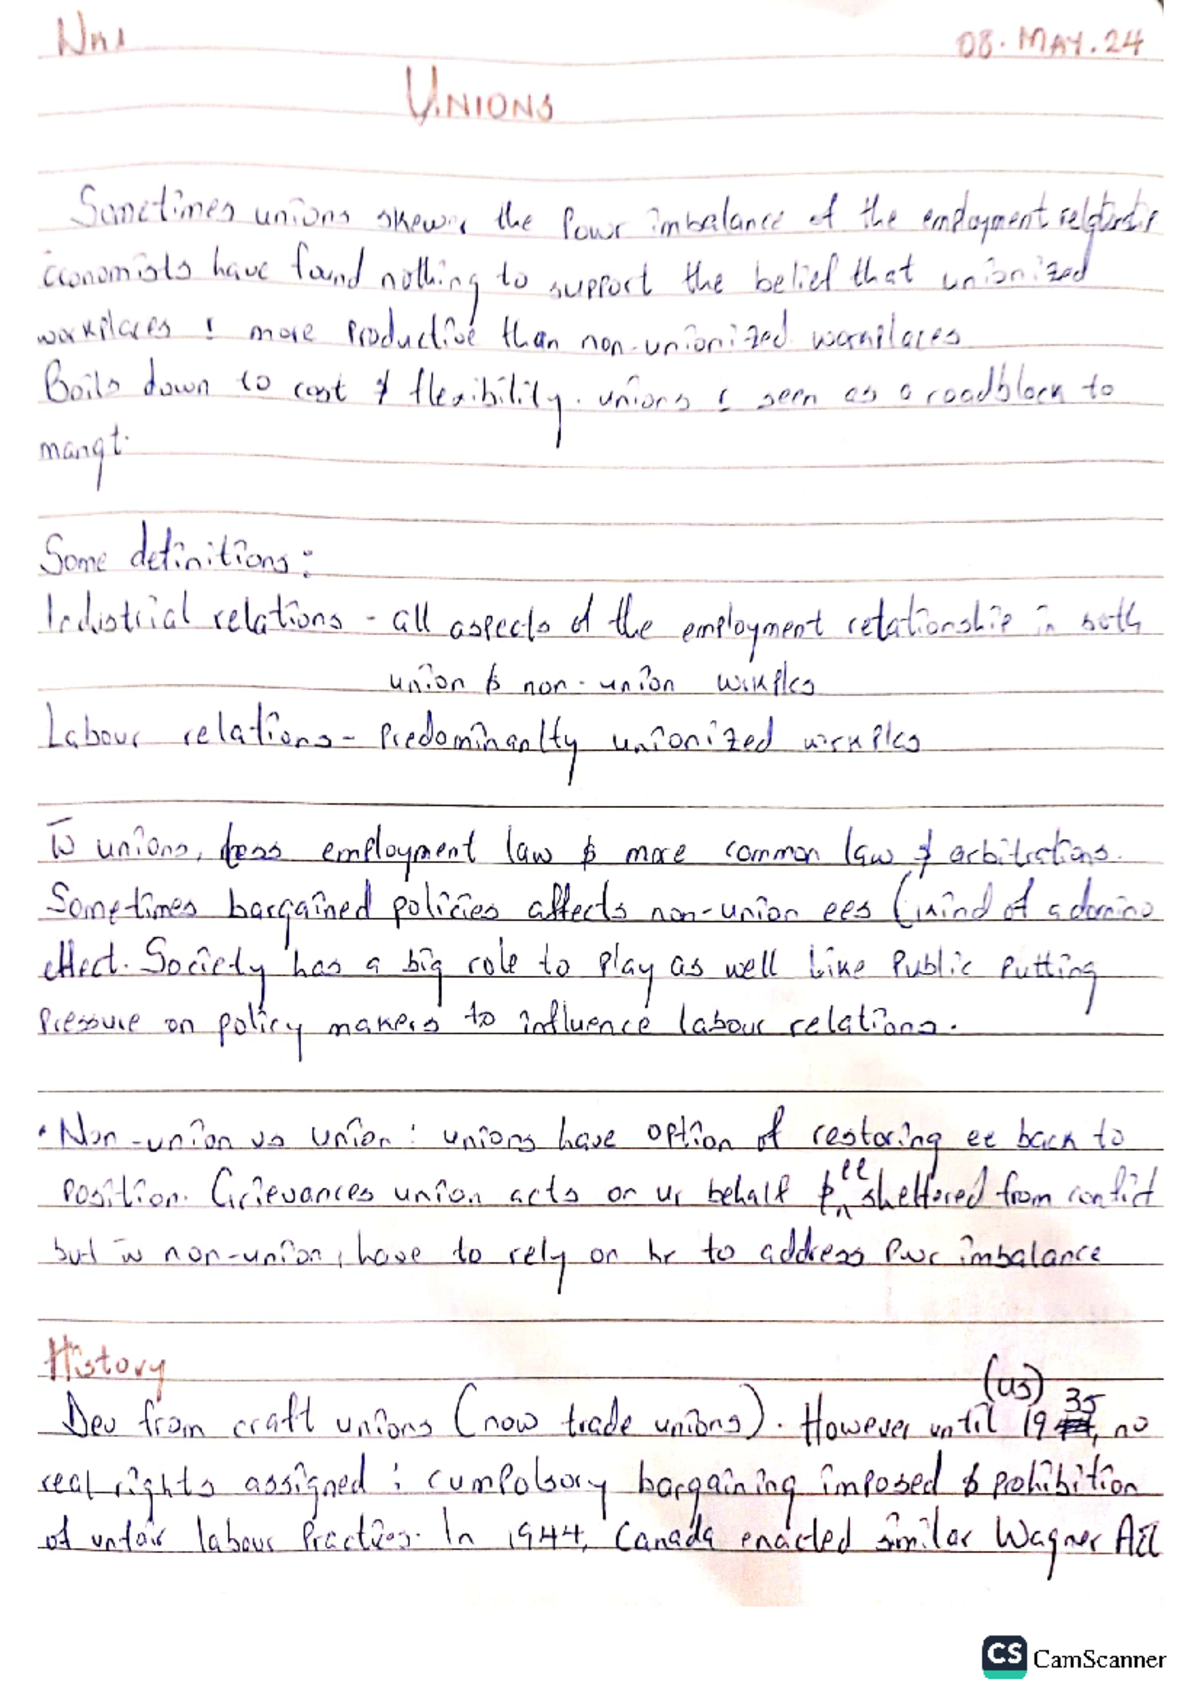 08. MAY. 24
UNIONS
Sometimes unions skewer the power imbalance of the employment
economists have found nothing to support the belief that unionized
workplaces more productive than non-unionized workplaces
Boils down to cost & flexibility. unions seen as a roadblock to
mangt.
Some definitions:
Industrial relations - all aspects of the employment relationship in both
union & non-union wrkplcs
Labour relations - Predominantly unionized wrkplcs
w unions, less employment law & more common law & arbitrations.
Sometimes bargained policies affects non-union ees (kind of a domino
effect. Society has a big role to play as well like Public Putting
Pressure on policy makers to influence labour relations.
• Non-union vs union: unions have option of restoring ee back to
position. Grievances union acts on ur behalf & ee sheltered from conflict
but w non-union, have to rely on hr to address pwr imbalance
History
Dev from craft unions (now trade unions). However until 1935 (us), no
real rights assigned : cumpolsory bargaining imposed & prohibition
of unfair labour Practices. In 1944, Canada enacted similar Wagner Act
CS CamScanner